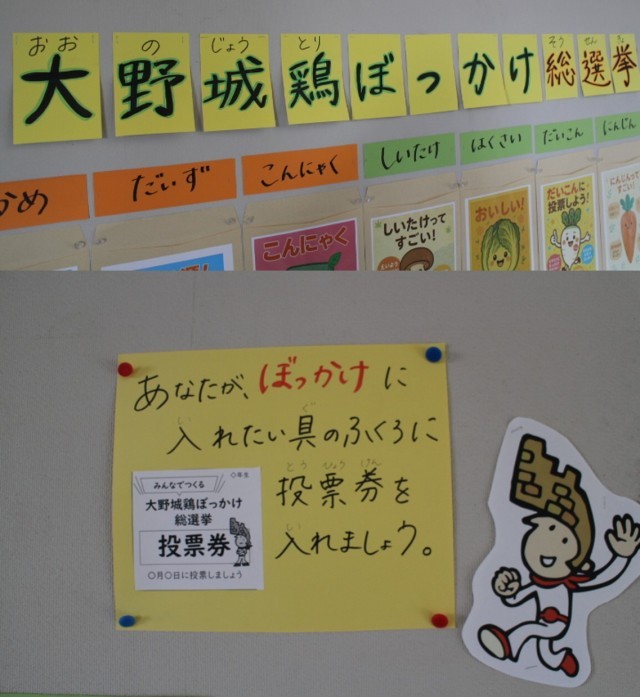 おお の じょう とり そう せん きょ
大野城鶏ぼっかけ総選挙
かめ だいず こんにゃく しいたけ はくさい だいこん にんじん
こんにゃく
しいたけって
すごい!
おいしい!
だいこんに
投票しよう!
にんじんって
すごい!
あなたが、ぼっかけに
い ぐ
入れたい具のふくろに
とう ひょう けん
投票券を
い
入れましょう。
〇年生
みんなでつくる
大野城鶏ぼっかけ
総選挙
投票券
〇月〇日に投票しましょう